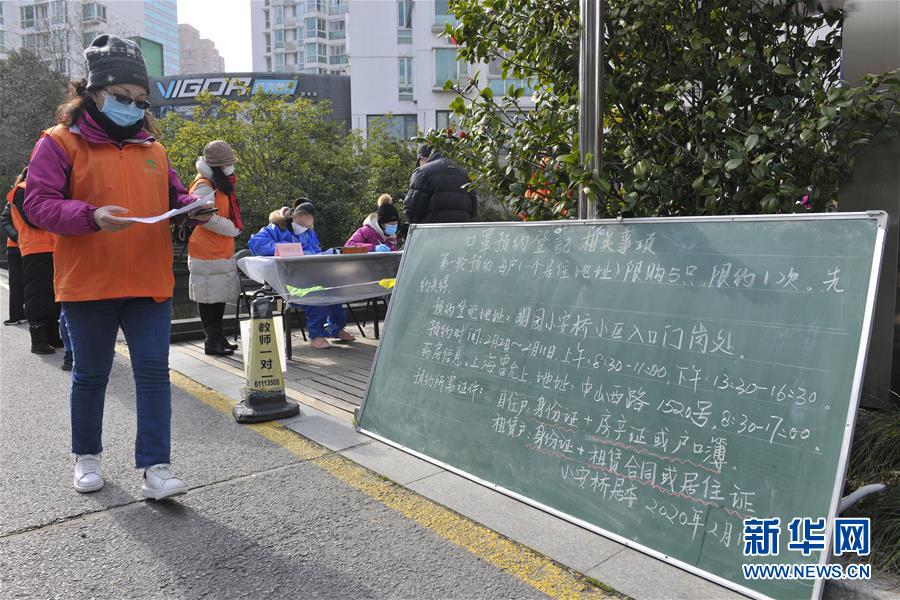 VIGOR
口罩预约登记相关事项
第一轮预约每户(一个居住地址)限购5只,限约1次。先
约先得。
预约登记地址:明园小安桥小区入口门岗处。
预约时间:2月2日-2月11日,上午:8:30-11:00,下午13:30-16:30。
药店信息:上海雷允上,地址:中山西路1520号,8:30-17:00。
预约所需证件:
自住户,身份证+房产证或户口簿。
租赁户,身份证+租赁合同或居住证
小安桥居委 2020年2月1
教师一对一
61113508
新华网
WWW.NEWS.CN